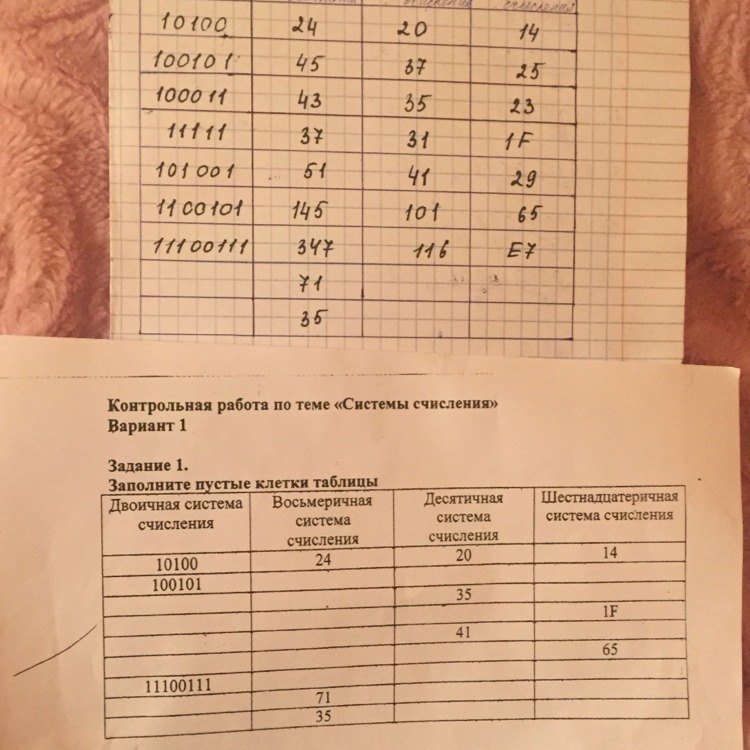 10100 24 20 14
100101 45 37 25
100011 43 35 23
11111 37 31 1F
101001 51 41 29
1100101 145 101 65
11100111 347 116 E7
71
35
Контрольная работа по теме «Системы счисления»
Вариант 1
Задание 1.
Заполните пустые клетки таблицы
Двоичная система Восьмеричная Десятичная Шестнадцатеричная
счисления система система система счисления
счисления счисления
10100 24 20 14
100101
35
1F
41
65
11100111
71
35